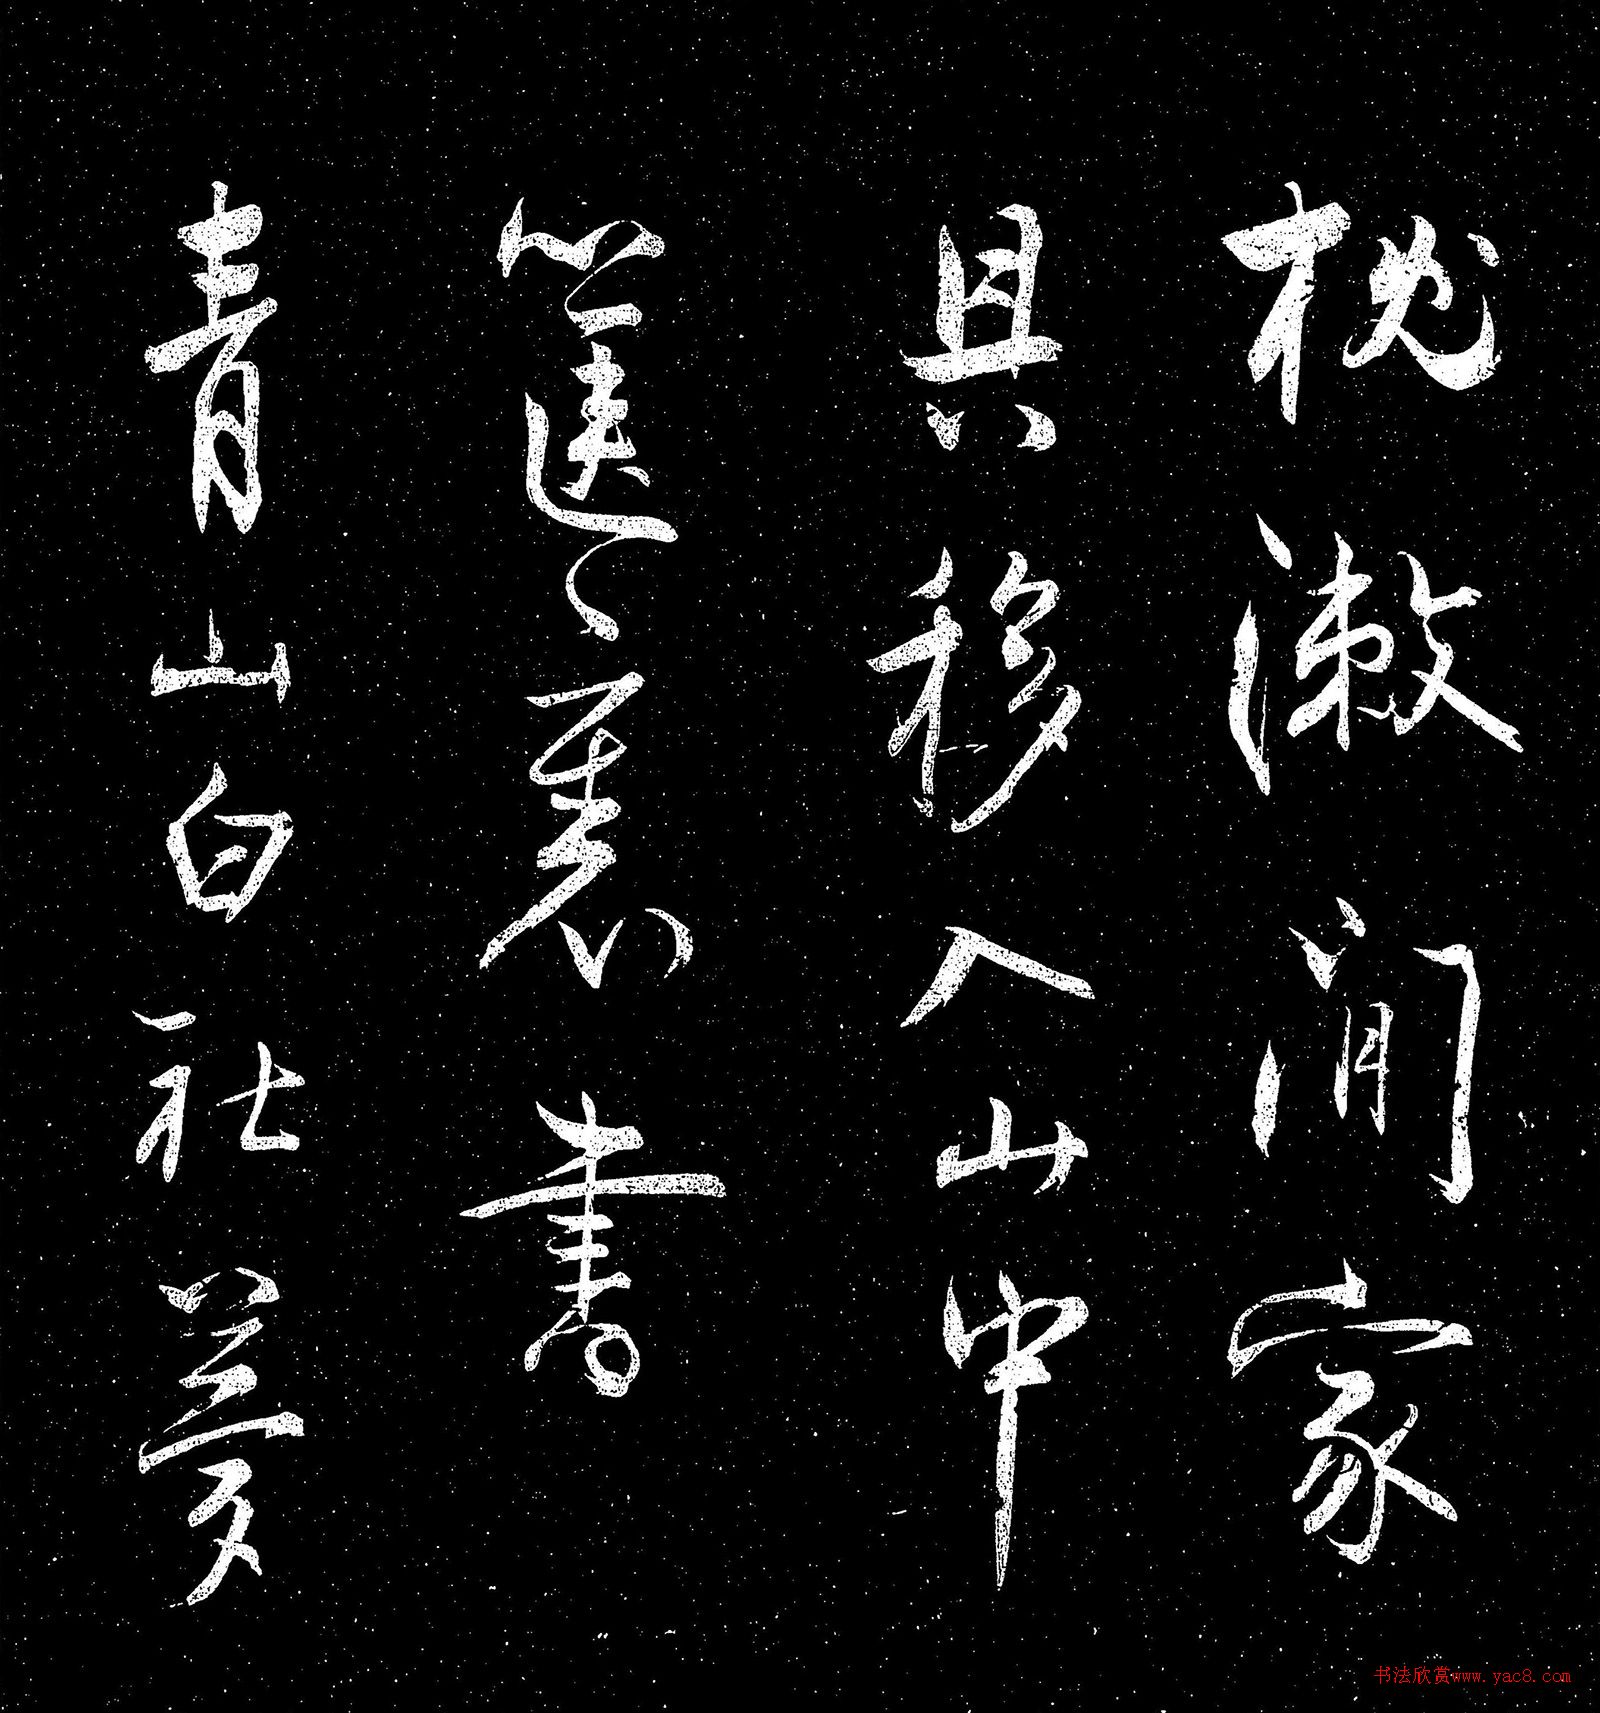 枕漱閒家
具移入山中
篋裏書
青山白社夢
书法欣赏www.yac8.com